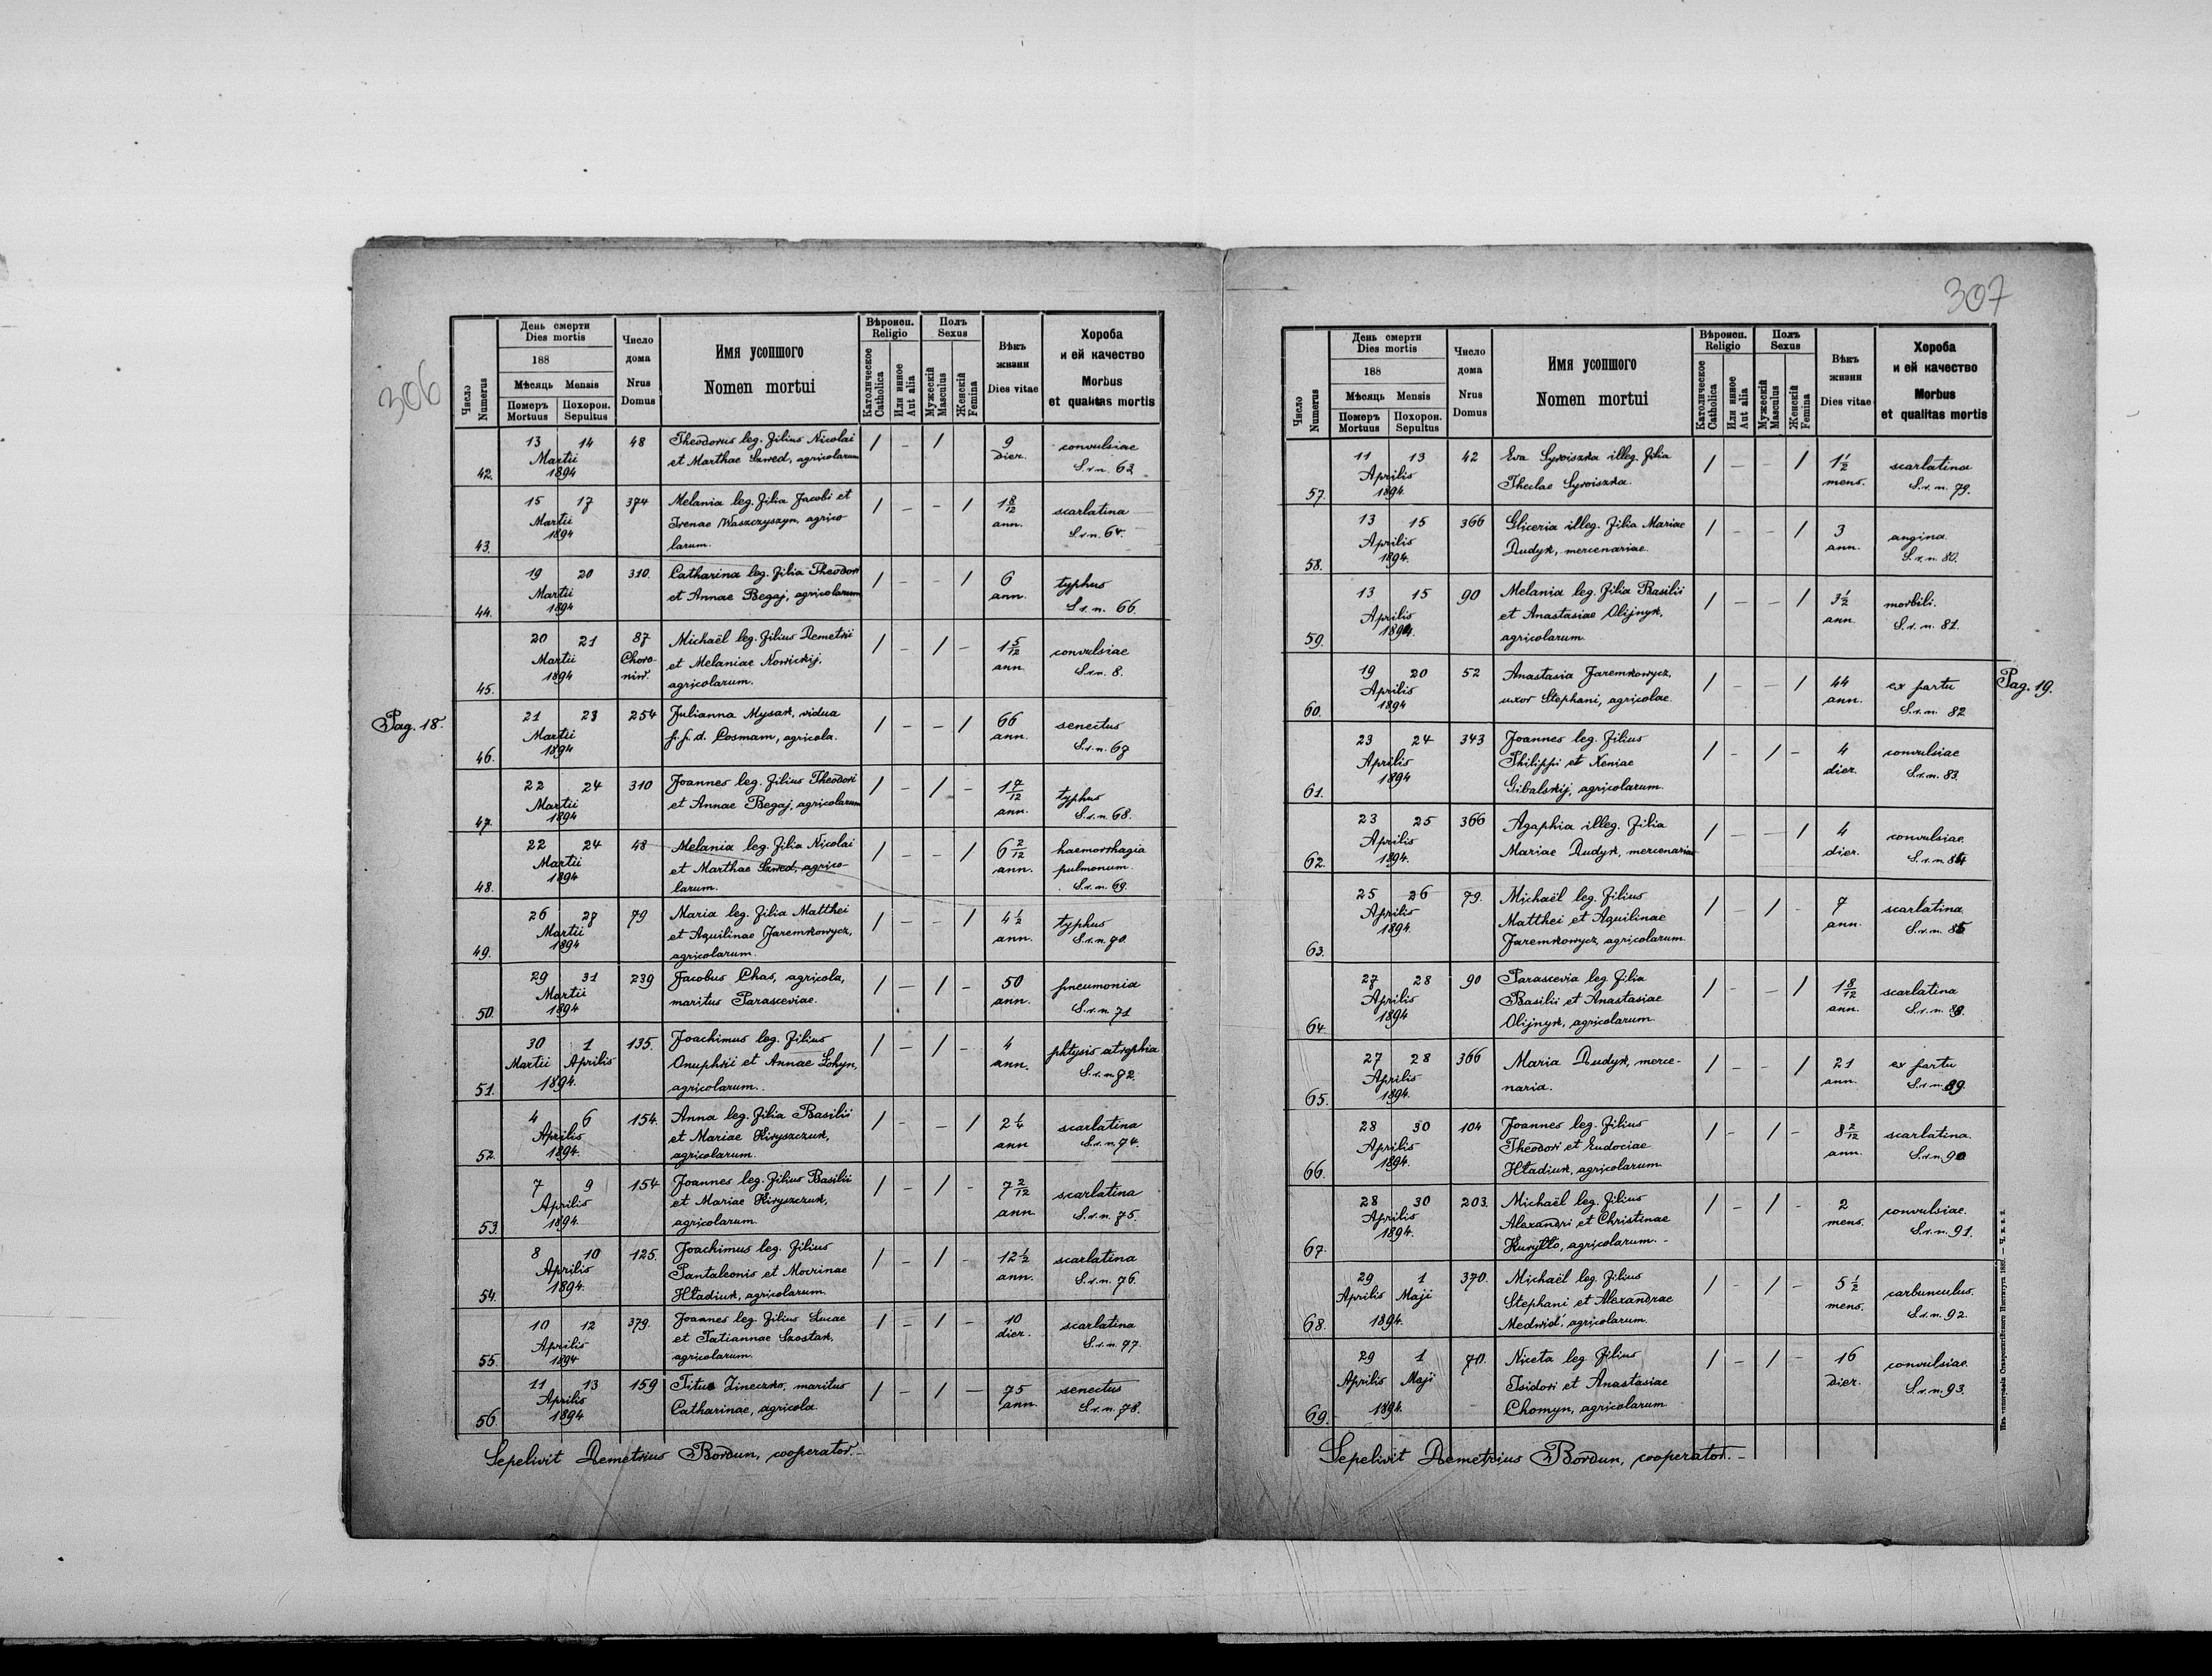 306
Pag. 18.
Число Numerus
День смерти
Dies mortis
188
Мѣсяць Mensis
Померъ Mortuus
Похорон. Sepultus
Число дома
Nrus Domus
Имя усопшого
Nomen mortui
Вѣроисп.
Religio
Католическое Catholica
Или инное Aut alia
Полъ
Sexus
Мужескій Masculus
Женскій Femina
Вѣкъ жизни
Dies vitae
Хороба
и ей качество
Morbus
et qualitas mortis
42. 13 14 48 Theodorus leg. filius Nicolai / – / 9 convulsiae
Martii et Marthae Szwed, agricolarum dier. S.v.n. 63.
1894
43. 15 17 374 Melania leg. filia Jacobi et / – – / 1 8/12 scarlatina
Martii Irenae Waszczyszyn, agrico- ann. S.v.n. 64.
1894 larum.
44. 19 20 310. Catharina leg. filia Theodori / – – / 6 typhus
Martii et Annae Begaj, agricolarum ann. S.v.n. 66.
1894
45. 20 21 87 Michaël leg. filius Demetrii / – / – 1 5/12 convulsiae
Martii Choro- et Melaniae Nowickij, ann. S.v.n. 8.
1894 niw. agricolarum.
46. 21 23 254 Julianna Mysak, vidua / – – / 66 senectus
Martii p. p. d. Cosmam, agricola. ann. S.v.n. 67
1894
47. 22 24 310 Joannes leg. filius Theodori / – / – 1 7/12 typhus
Martii et Annae Begaj, agricolarum ann. S.v.n. 68.
1894
48. 22 24 48 Melania leg. filia Nicolai / – – / 6 2/12 haemorrhagia
Martii et Marthae Szwed, agrico- ann. pulmonum.
1894 larum. S.v.n. 69.
49. 26 27 79 Maria leg. filia Matthei / – – / 4 1/2 typhus
Martii et Aquilinae Jaremkowycz, ann. S.v.n. 70.
1894 agricolarum.
50. 29 31 239 Jacobus Chas, agricola, / – / – 50 pneumonia
Martii maritus Parasceviae. ann. S.v.n. 71
1894
51. 30 1 135. Joachimus leg. filius / – / – 4 phtysis atrophia
Martii Aprilis Onuphrii et Annae Łohyn, ann. S.v.n. 72.
1894. agricolarum.
52. 4 6 154. Anna leg. filia Basilii / – – / 2 1/4 scarlatina
Aprilis et Mariae Kiryszczuk, ann S.v.n. 74.
1894. agricolarum.
53. 7 9 154 Joannes leg. filius Basilii / – / – 7 2/12 scarlatina
Aprilis et Mariae Kiryszczuk, ann. S.v.n. 75.
1894. agricolarum
54. 8 10 125. Joachimus leg. filius / – / – 12 1/2 scarlatina
Aprilis Pantaleonis et Mocrinae ann. S.v.n. 76.
1894. Hładiuk, agricolarum.
55. 10 12 379. Joannes leg. filius Lucae / – / – 10 scarlatina
Aprilis et Tatiannae Szostak, dier. S.v.n. 77.
1894 agricolarum.
56. 11 13 159 Titus Zineczko, maritus / – / – 75 senectus
Aprilis Catharinae, agricola. ann. S.v.n. 78.
1894
Sepelivit Demetrius Bordun, cooperator. –
307
Pag. 19.
Число Numerus
День смерти
Dies mortis
188
Мѣсяць Mensis
Померъ Mortuus
Похорон. Sepultus
Число дома
Nrus Domus
Имя усопшого
Nomen mortui
Вѣроисп.
Religio
Католическое Catholica
Или инное Aut alia
Полъ
Sexus
Мужескій Masculus
Женскій Femina
Вѣкъ жизни
Dies vitae
Хороба
и ей качество
Morbus
et qualitas mortis
57. 11 13 42 Eva Syroiszka illeg. filia / – – / 1 1/2 scarlatina
Aprilis Theclae Syroiszka. mens. S.v.n. 79.
1894.
58. 13 15 366 Gliceria illeg. filia Mariae / – – / 3 angina.
Aprilis Dudyk, mercenariae. ann. S.v.n. 80.
1894.
59. 13 15 90 Melania leg. filia Basilii / – – / 3 1/2 morbili.
Aprilis et Anastasiae Olijnyk, ann. S.v.n. 81.
1894. agricolarum.
60. 19 20 52 Anastasia Jaremkowycz, / – – / 44 ex partu
Aprilis uxor Stephani, agricolae. ann. S.v.n. 82
1894
61. 23 24 343 Joannes leg. filius / – / – 4 convulsiae
Aprilis Philippi et Xeniae dier. S.v.n. 83.
1894 Gibalskij, agricolarum.
62. 23 25 366 Agaphia illeg. filia / – – / 4 convulsiae.
Aprilis Mariae Dudyk, mercenariae dier. S.v.n. 84
1894.
63. 25 26 79. Michaël leg. filius / – / – 7 scarlatina
Aprilis Matthei et Aquilinae ann. S.v.n. 85
1894. Jaremkowycz, agricolarum.
64. 27 28 90 Parascevia leg. filia / – – / 1 8/12 scarlatina
Aprilis Basilii et Anastasiae ann. S.v.n.
1894 Olijnyk, agricolarum.
65. 27 28 366 Maria Dudyk, merce- / – – / 21 ex partu
Aprilis naria. ann. S.v.n. 89
1894.
66. 28 30 104 Joannes leg. filius / – / – 8 2/12 scarlatina.
Aprilis Theodori et Eudociae ann. S.v.n. 90
1894. Hładiuk, agricolarum.
67. 28 30 203. Michaël leg. filius / – / – 2 convulsiae.
Aprilis Alexandri et Christinae mens. S.v.n. 91.
1894. Kuryłło, agricolarum. –
68. 29 1 370. Michaël leg. filius / – / – 5 1/2 carbunculus.
Aprilis Maji Stephani et Alexandrae mens. S.v.n. 92.
1894. Medwid', agricolarum.
69. 29 1 70. Niceta leg. filius / – / – 16 convulsiae.
Aprilis Maji Isidori et Anastasiae dier. S.v.n. 93.
1894. Chomyn, agricolarum
Sepelivit Demetrius Bordun, cooperator. –
Изъ типографіи Ставропигійского Института